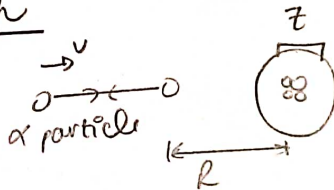 z
→ v
α particle
R